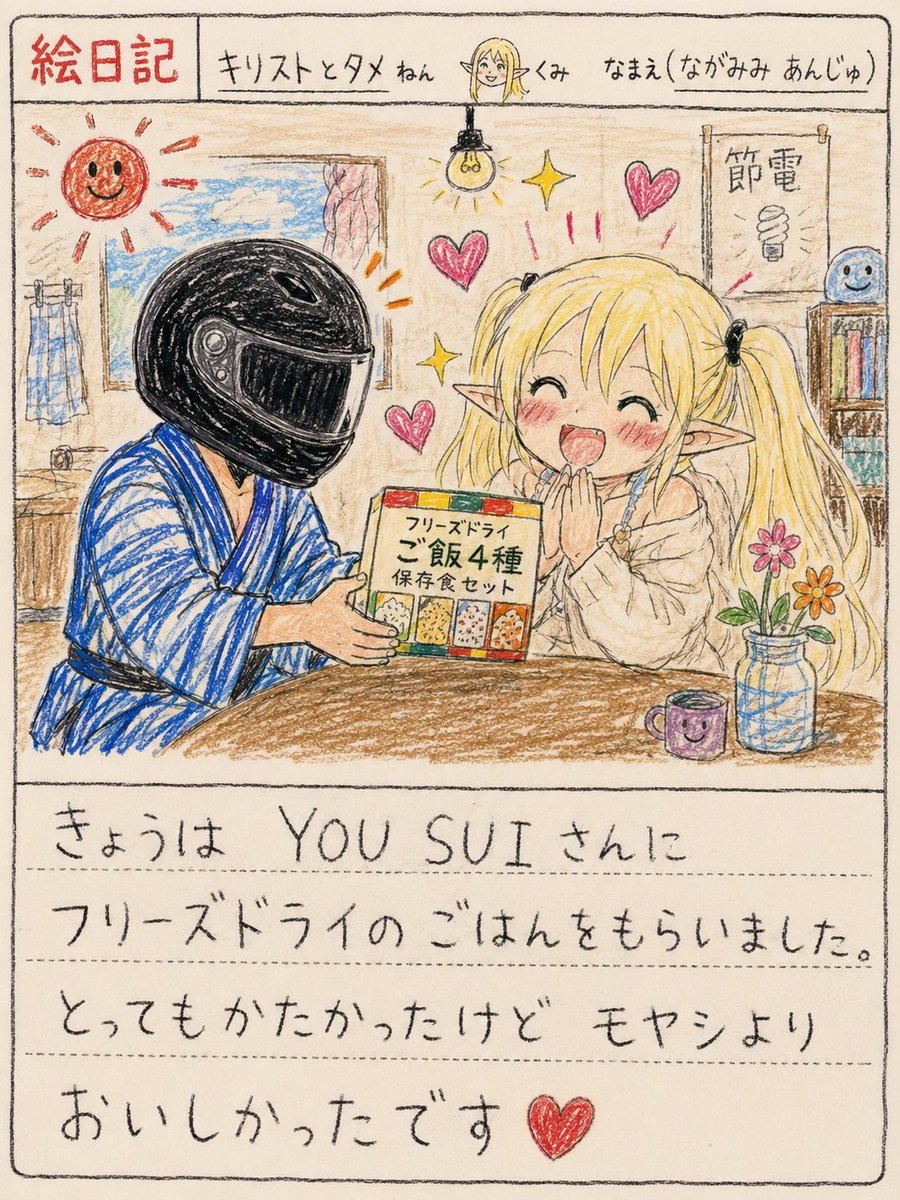 絵日記
キリストとタメ ねん くみ なまえ(ながみみ あんじゅ)
節電
フリーズドライ
ご飯4種
保存食セット
きょうは YOU SUI さんに
フリーズドライの ごはんをもらいました。
とってもかたかったけど モヤシより
おいしかったです